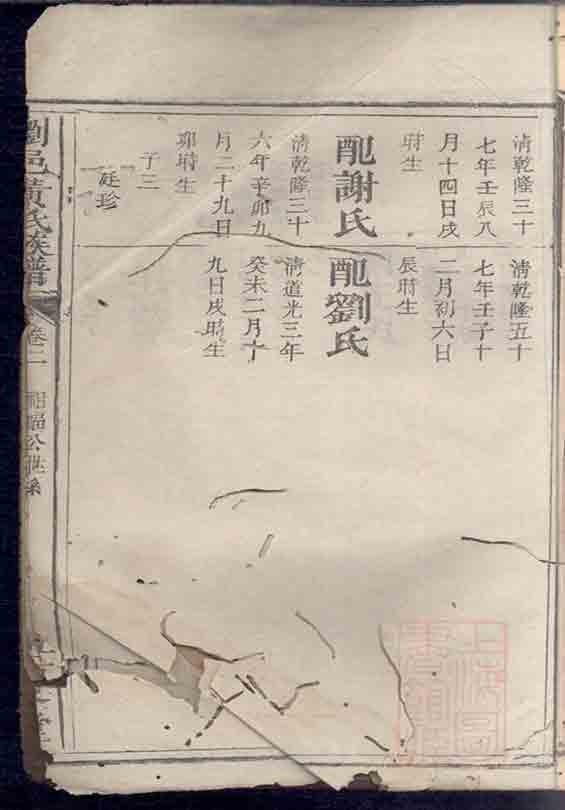 清乾隆三十
七年壬辰八
月十四日戌
時生
配謝氏
清乾隆三十
六年辛卯九
月二十九日
卯時生
子三
廷珍
清乾隆五十
七年壬子十
二月初六日
辰時生
配劉氏
清道光三年
癸未二月十
九日戌時生
劉邑黃氏族譜
卷二
公世系
上海圖
書館藏